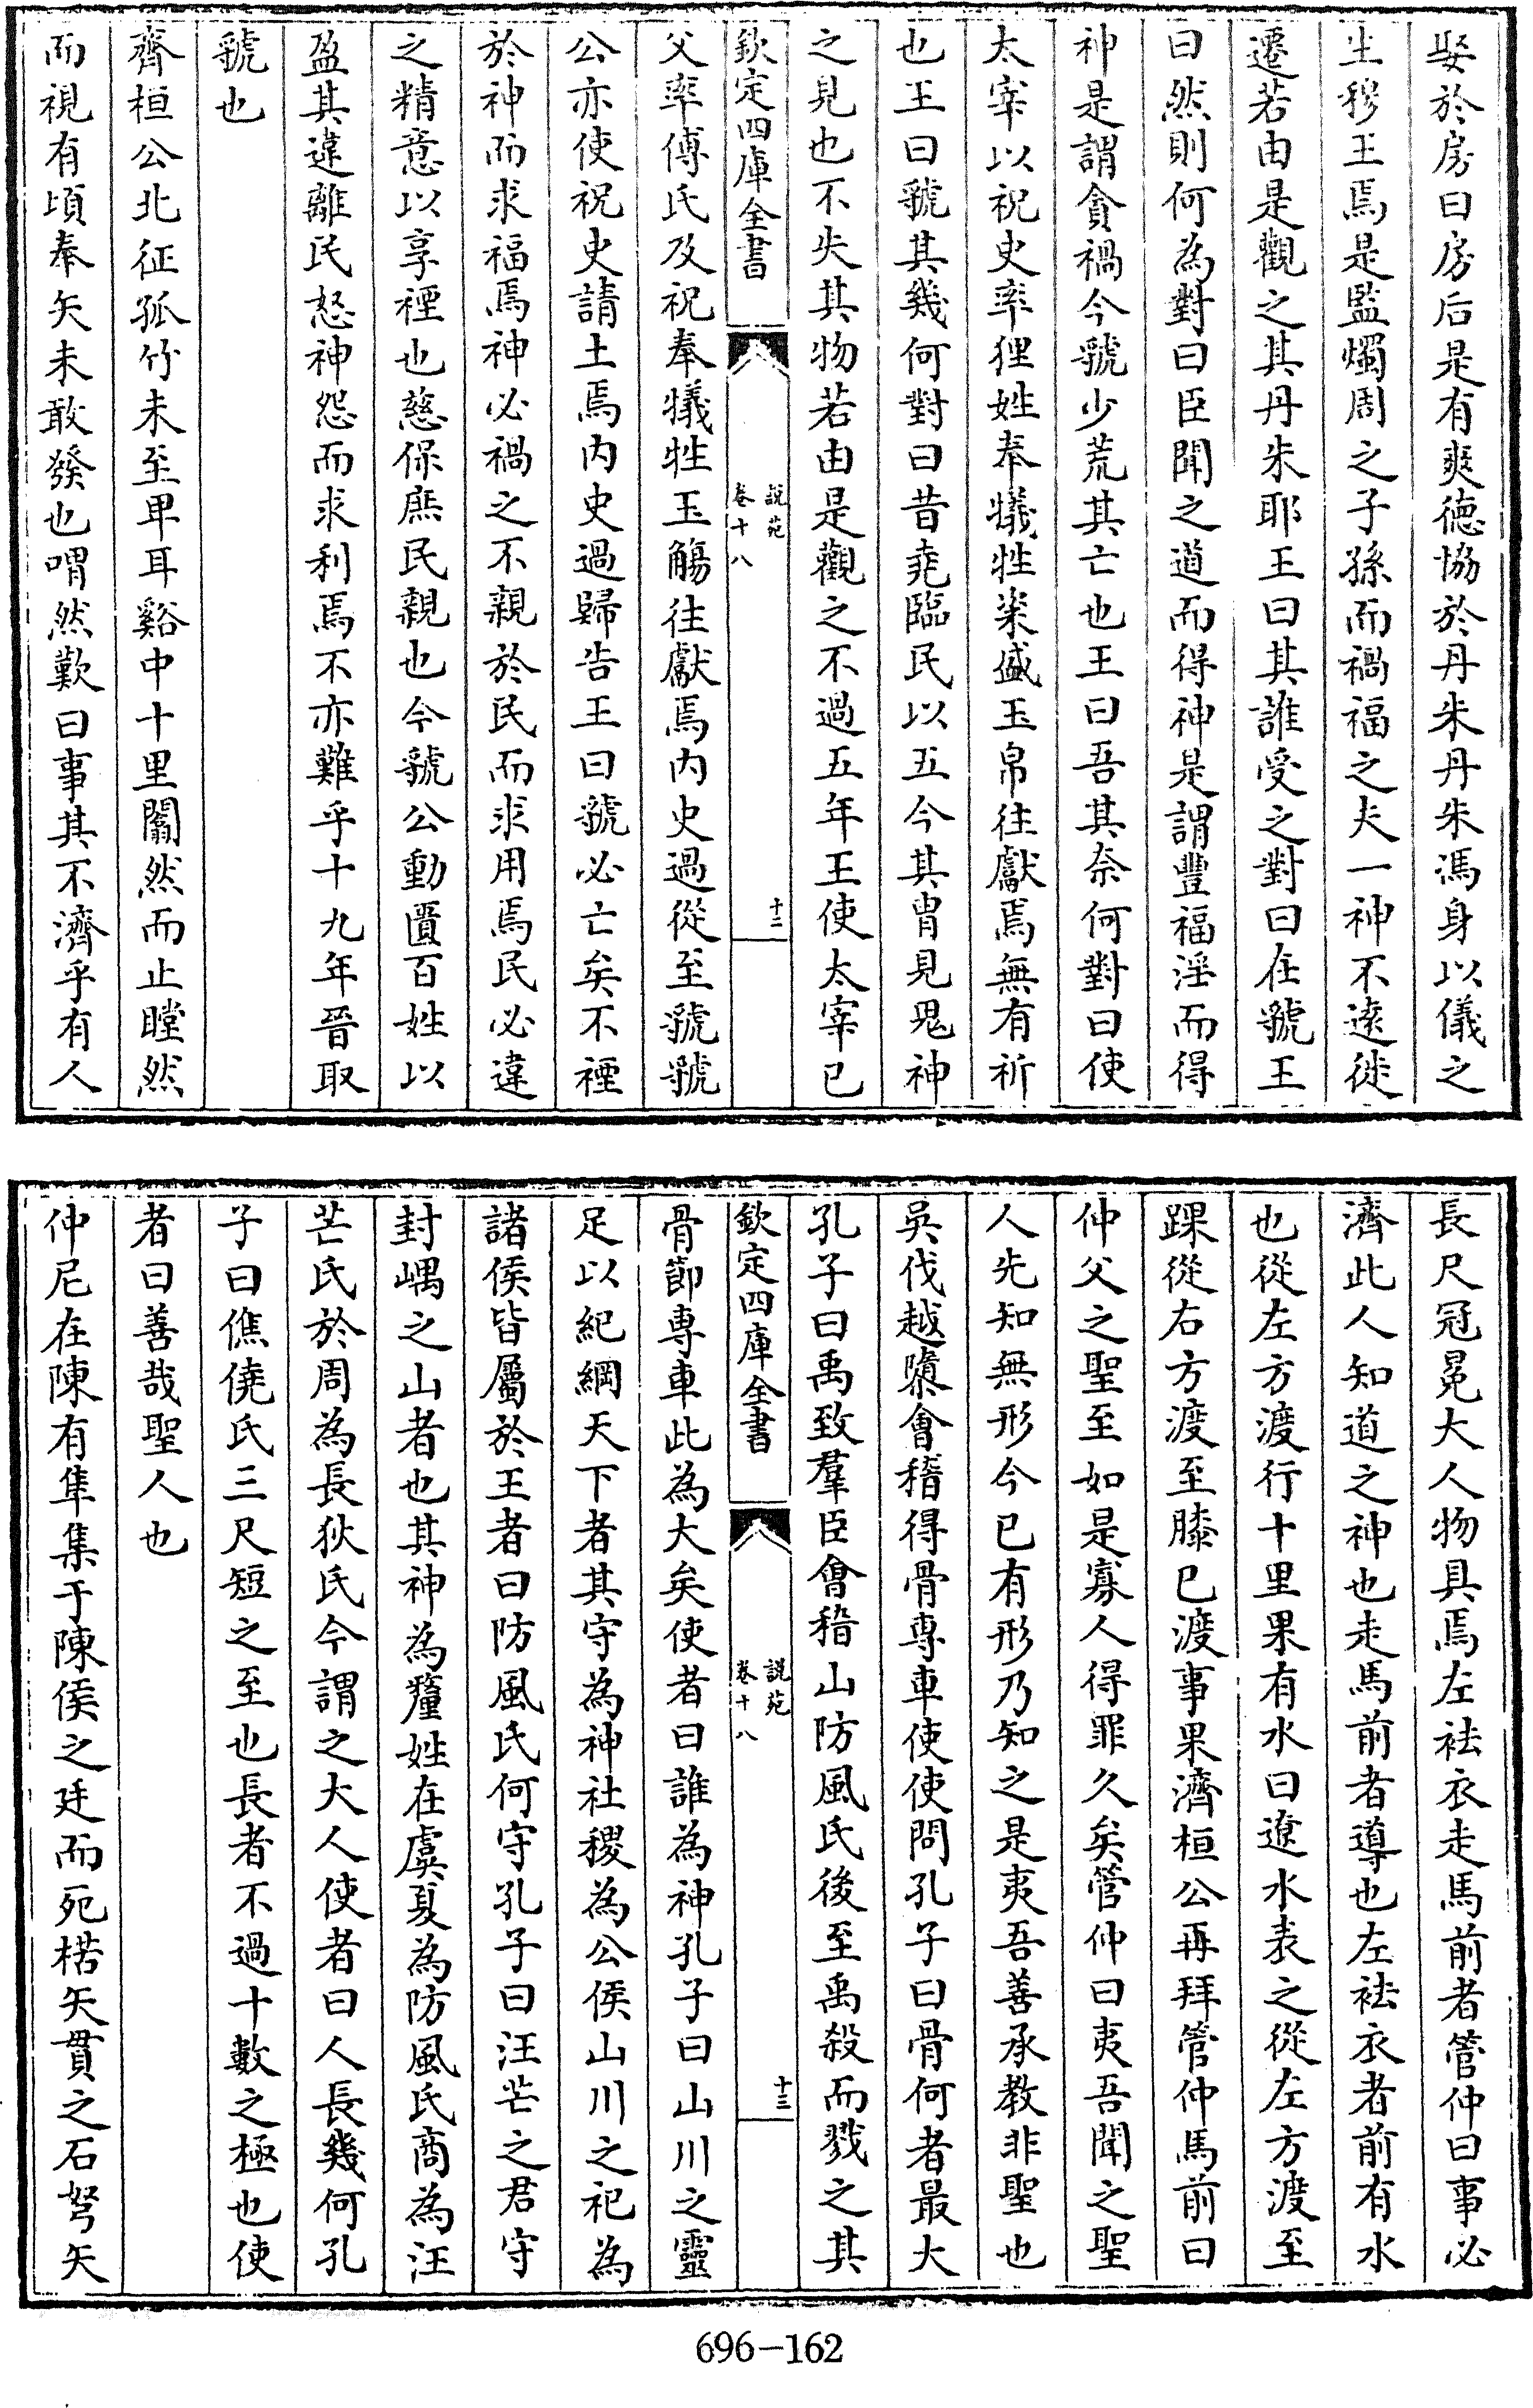 娶於房曰房后是有爽德協於丹朱丹朱馮身以儀之
生穆王焉是監燭周之子孫而禍福之夫一神不逺徙
遷若由是觀之其丹朱耶王曰其誰受之對曰在虢王
曰然則何為對曰臣聞之道而得神是謂豐福淫而得
神是謂貪禍今虢少荒其亡也王曰吾其奈何對曰使
太宰以祝史率狸姓奉犧牲粢盛玉帛往獻焉無有祈
也王曰虢其幾何對曰昔堯臨民以五今其胄見鬼神
之見也不失其物若由是觀之不過五年王使太宰已
欽定四庫全書
說苑
卷十八
十二
父率傅氏及祝奉犧牲玉觴往獻焉内史過從至虢虢
公亦使祝史請土焉内史過歸告王曰虢必亡矣不禋
於神而求福焉神必禍之不親於民而求用焉民必違
之精意以享禋也慈保庶民親也今虢公動匱百姓以
盈其違離民怒神怨而求利焉不亦難乎十九年晉取
虢也
齊桓公北征孤竹未至卑耳谿中十里闟然而止瞠然
而視有頃奉矢未敢發也喟然歎曰事其不濟乎有人
長尺冠冕大人物具焉左袪衣走馬前者管仲曰事必
濟此人知道之神也走馬前者導也左袪衣者前有水
也從左方渡行十里果有水曰遼水表之從左方渡至
踝從右方渡至膝已渡事果濟桓公再拜管仲馬前曰
仲父之聖至如是寡人得罪久矣管仲曰夷吾聞之聖
人先知無形今已有形乃知之是夷吾善承教非聖也
吳伐越隳會稽得骨專車使使問孔子曰骨何者最大
孔子曰禹致羣臣會稽山防風氏後至禹殺而戮之其
欽定四庫全書
說苑
卷十八
十三
骨節專車此為大矣使者曰誰為神孔子曰山川之靈
足以紀綱天下者其守為神社稷為公侯山川之祀為
諸侯皆屬於王者曰防風氏何守孔子曰汪芒之君守
封嵎之山者也其神為釐姓在虞夏為防風氏商為汪
芒氏於周為長狄氏今謂之大人使者曰人長幾何孔
子曰僬僥氏三尺短之至也長者不過十數之極也使
者曰善哉聖人也
仲尼在陳有隼集于陳侯之廷而死楛矢貫之石砮矢
696-162